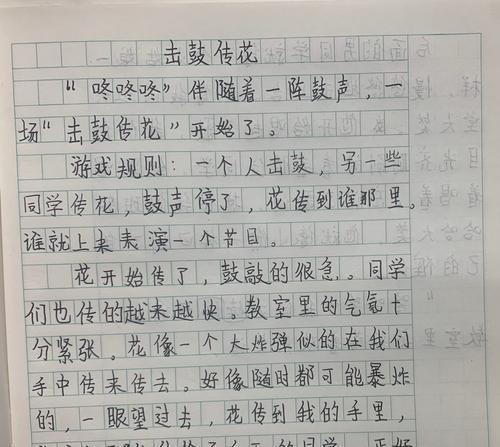 击鼓传花
“咚咚咚”伴随着一阵鼓声，一
场“击鼓传花”开始了。
游戏规则：一个人击鼓，另一些
同学传花，鼓声停了，花传到谁那里。
谁就上来表演一个节目。
花开始传了，鼓敲的很急。同学
们也传的越来越快。教室里的气氛十
分紧张。花像一个大炸弹似的在我们
手中传来传去。好像随时都可能暴炸
的，一眼望过去，花传到我的手里，